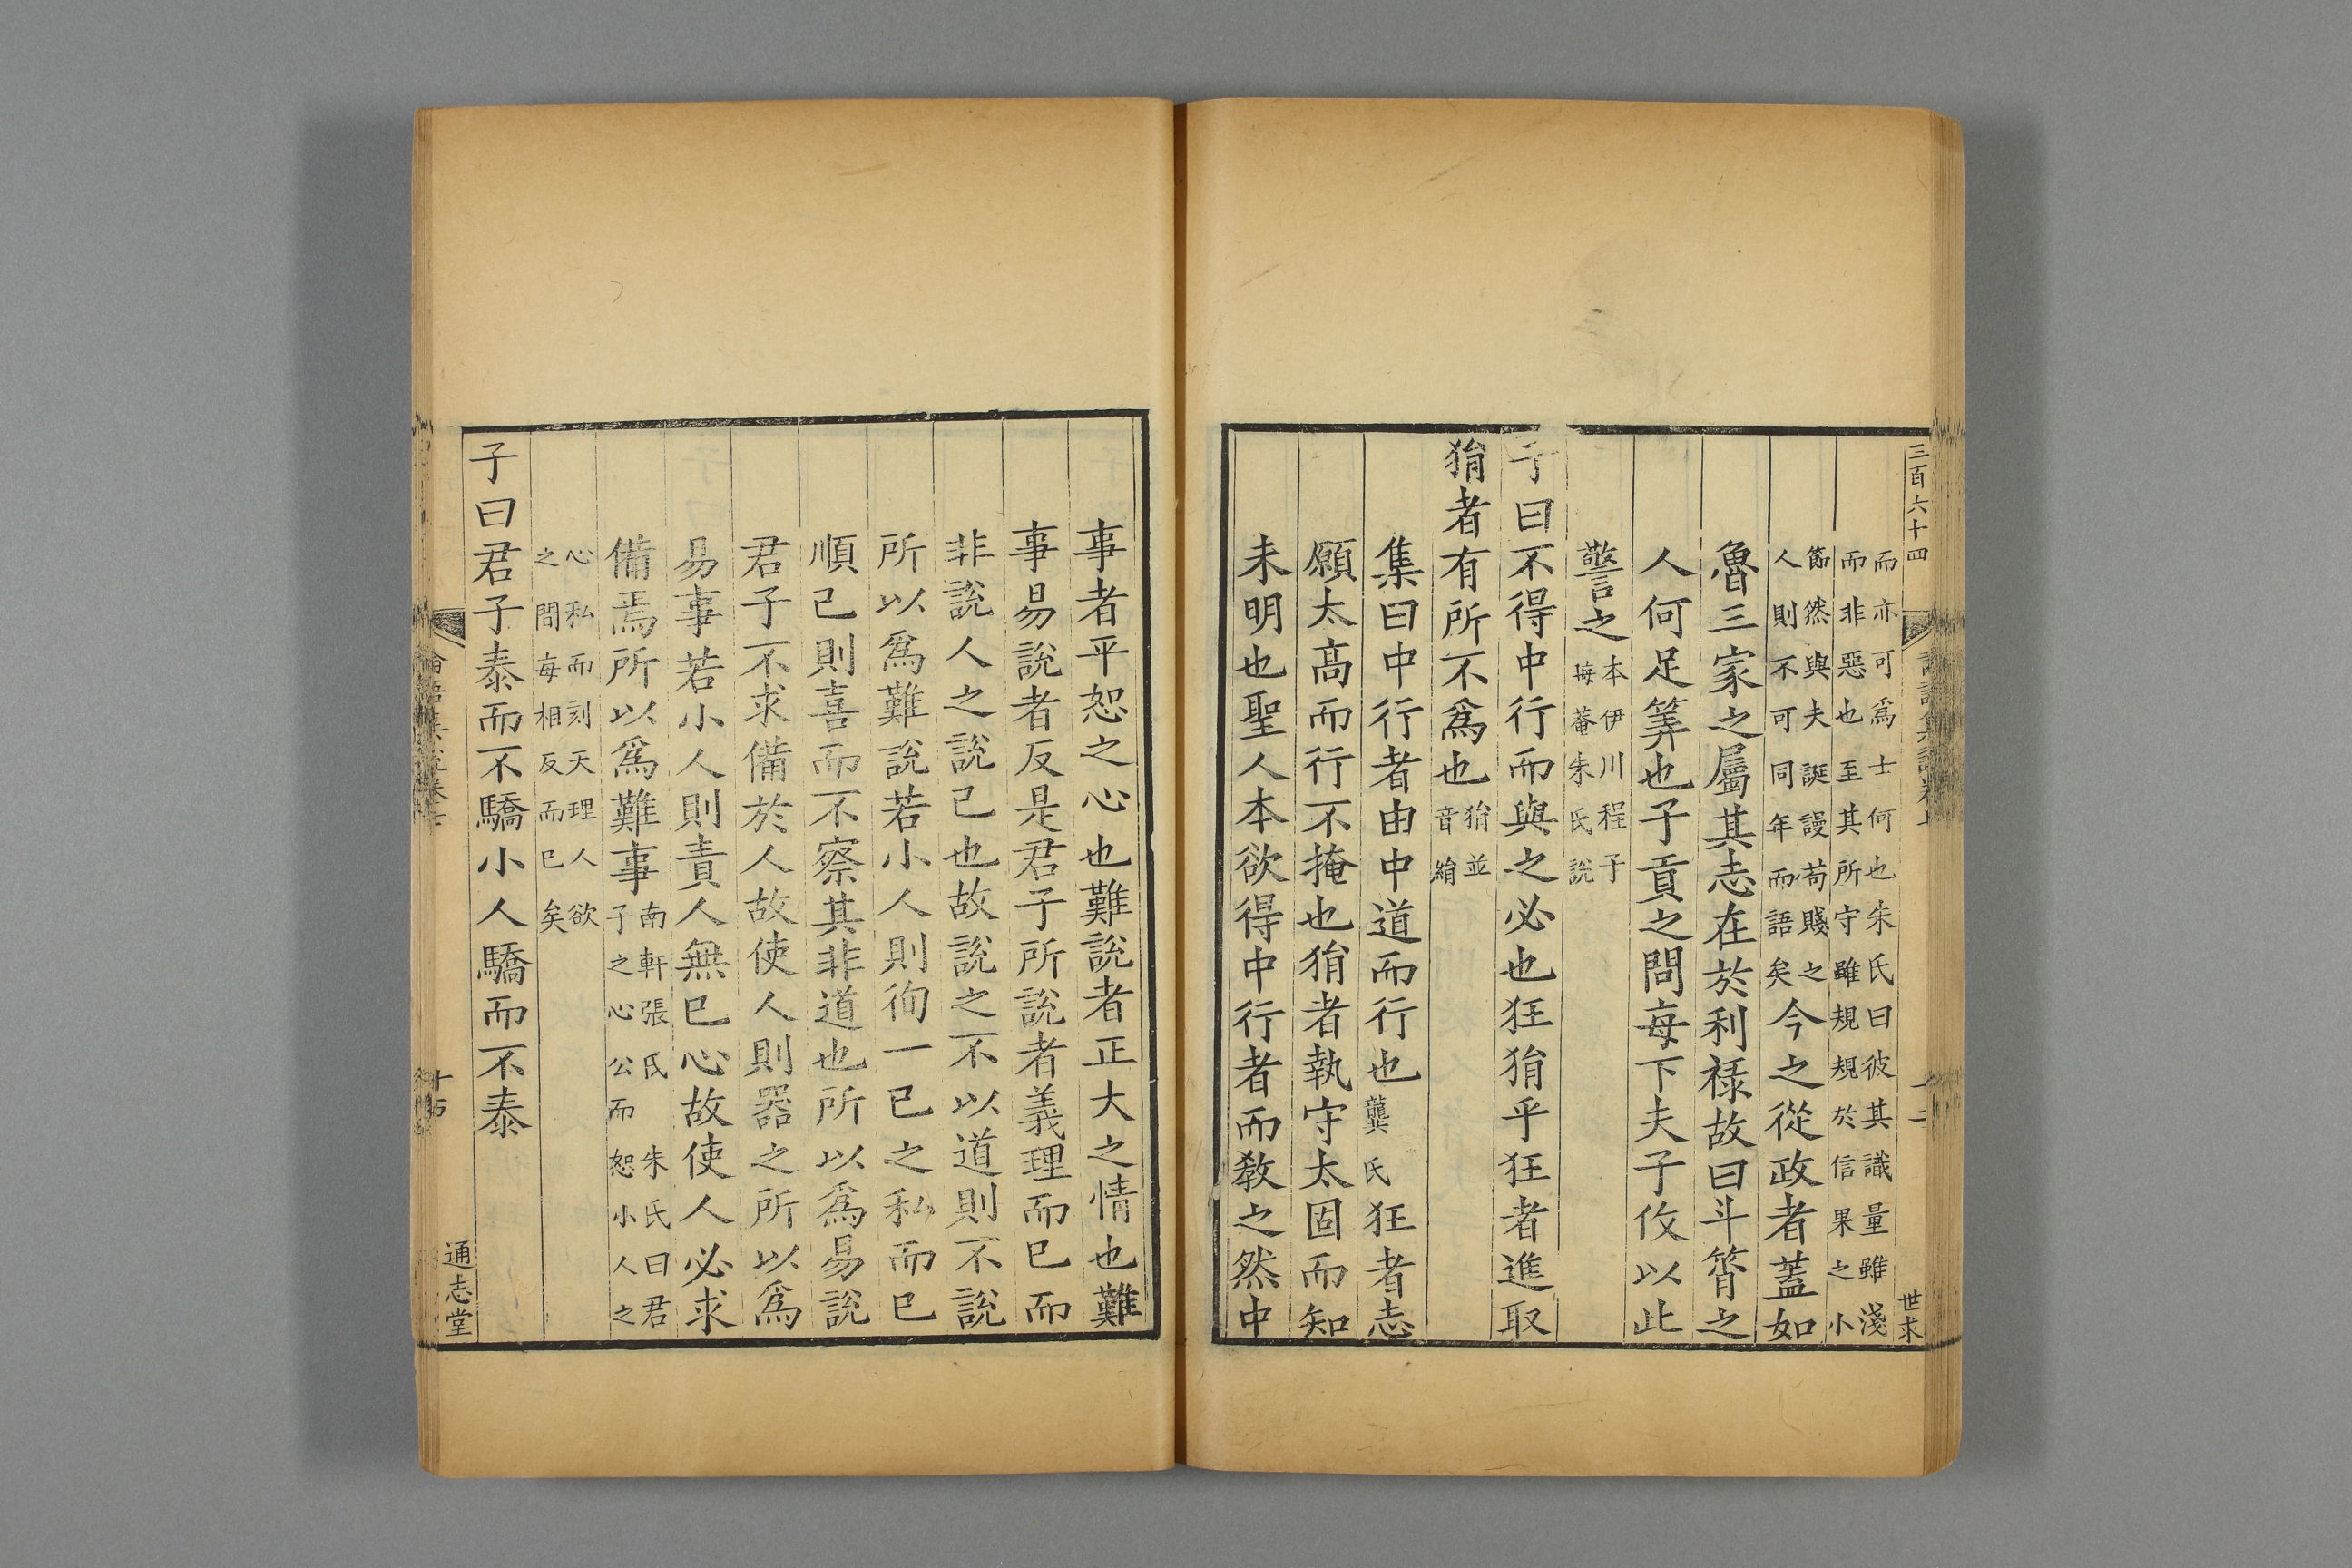 三百六十四
世求
而亦可爲士何也朱氏曰彼其識量雖淺
而非惡也至其所守雖規規於信果之小
節然與夫誕謾苟賤之
人則不可同年而語矣今之從政者蓋如
魯三家之屬其志在於利祿故曰斗筲之
人何足筭也子貢之問每下夫子伩以此
警之本伊川程子
晦菴朱氏說
子曰不得中行而與之必也狂狷乎狂者進取
狷者有所不爲也狷並
音絹
集曰中行者由中道而行也龔氏狂者志
願太高而行不掩也狷者執守太固而知
未明也聖人本欲得中行者而教之然中
事者平恕之心也難說者正大之情也難
事易說者反是君子所說者義理而已而
非說人之說己也故說之不以道則不說
所以爲難說若小人則徇一已之私而已
順己則喜而不察其非道也所以爲易說
君子不求備於人故使人則器之所以爲
易事若小人則責人無已心故使人必求
備焉所以爲難事南軒張氏 朱氏曰君
子之心公而恕小人之
心私而刻天理人欲
之間每相反而已矣
子曰君子泰而不驕小人驕而不泰
論語集說卷七
十五
通志堂